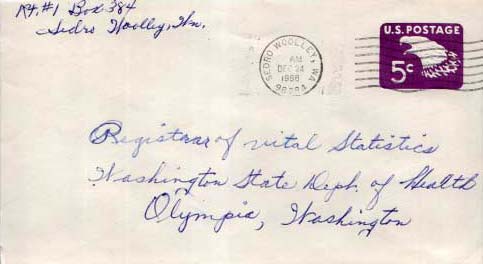 Rt. #1 Box 384
Sedro Woolley, Wn.
SEDRO WOOLLEY, WA
AM
DEC 24
1968
98284
U.S. POSTAGE
5c
Registrar of Vital Statistics
Washington State Dept. of Health
Olympia, Washington